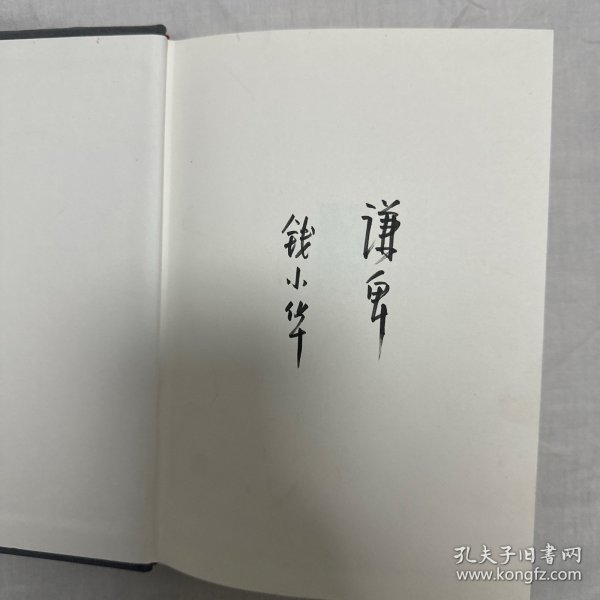 谦卑
钱小华
孔夫子旧書网
www.kongfz.com